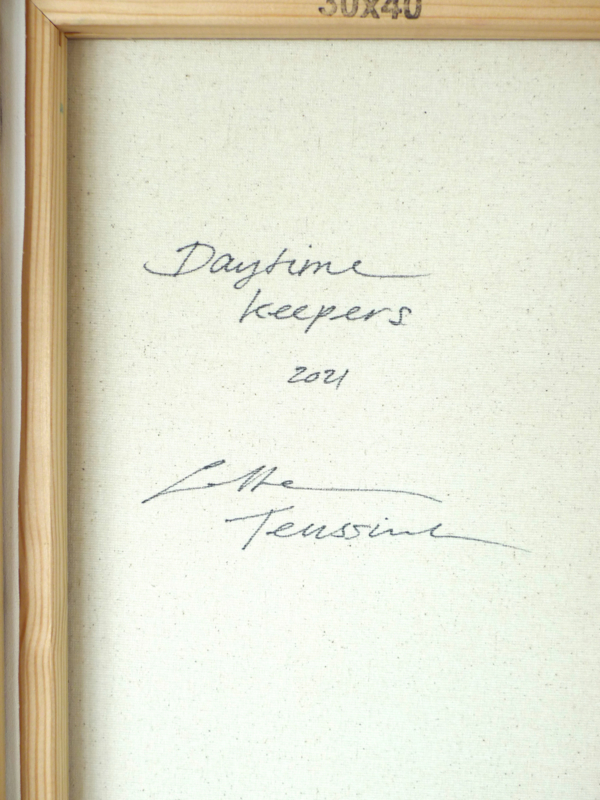 30x40
Daytime
keepers
2021
Lotte
Teussink